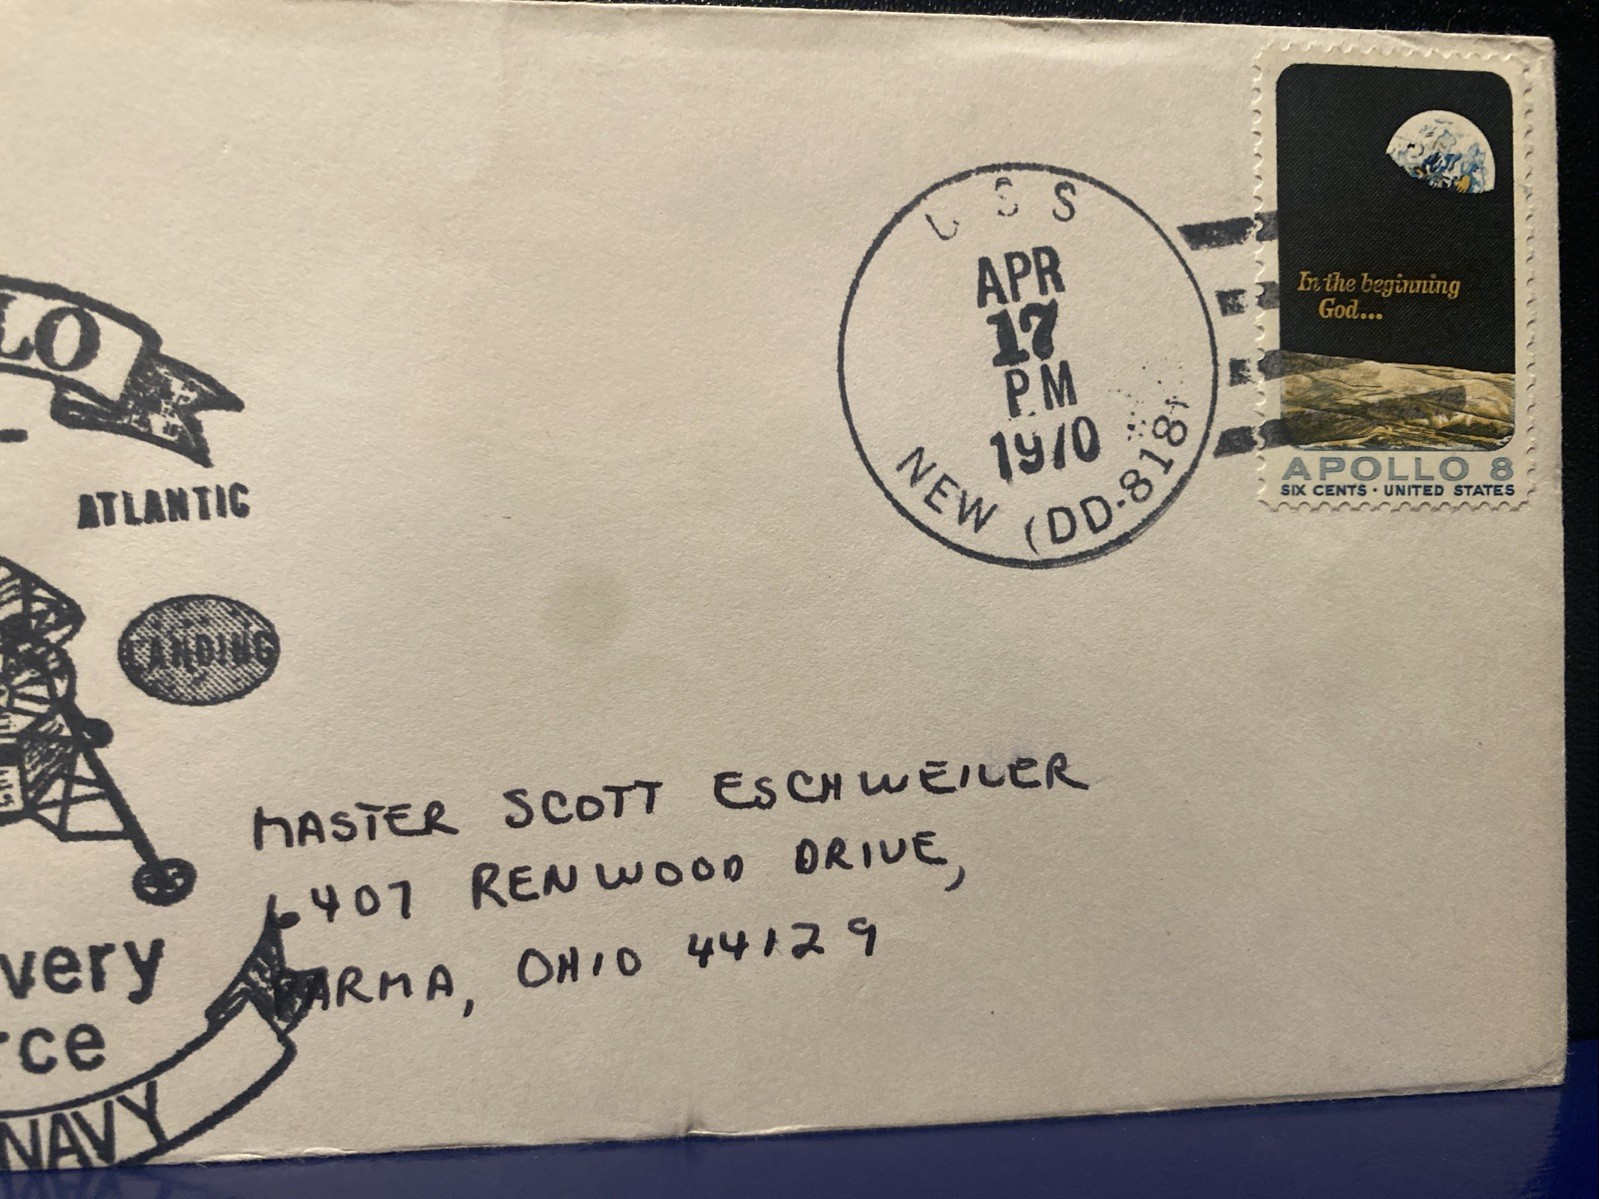 LO
ATLANTIC
LANDING
very
rce
NAVY
USS
APR
17
PM
1970
NEW (DD-818)
In the beginning
God...
APOLLO 8
SIX CENTS · UNITED STATES
MASTER SCOTT ESCHWEILER
6407 RENWOOD DRIVE,
PARMA, OHIO 44129